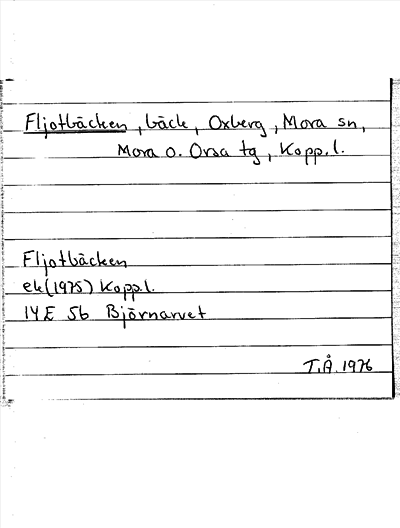 Fljotbäcken, bäck, Oxberg, Mora sn,
Mora o. Orsa tg, Kopp.l.
Fljotbäcken
ek(1975) Kopp.l.
14E 5b Björnarvet
T.Å. 1976